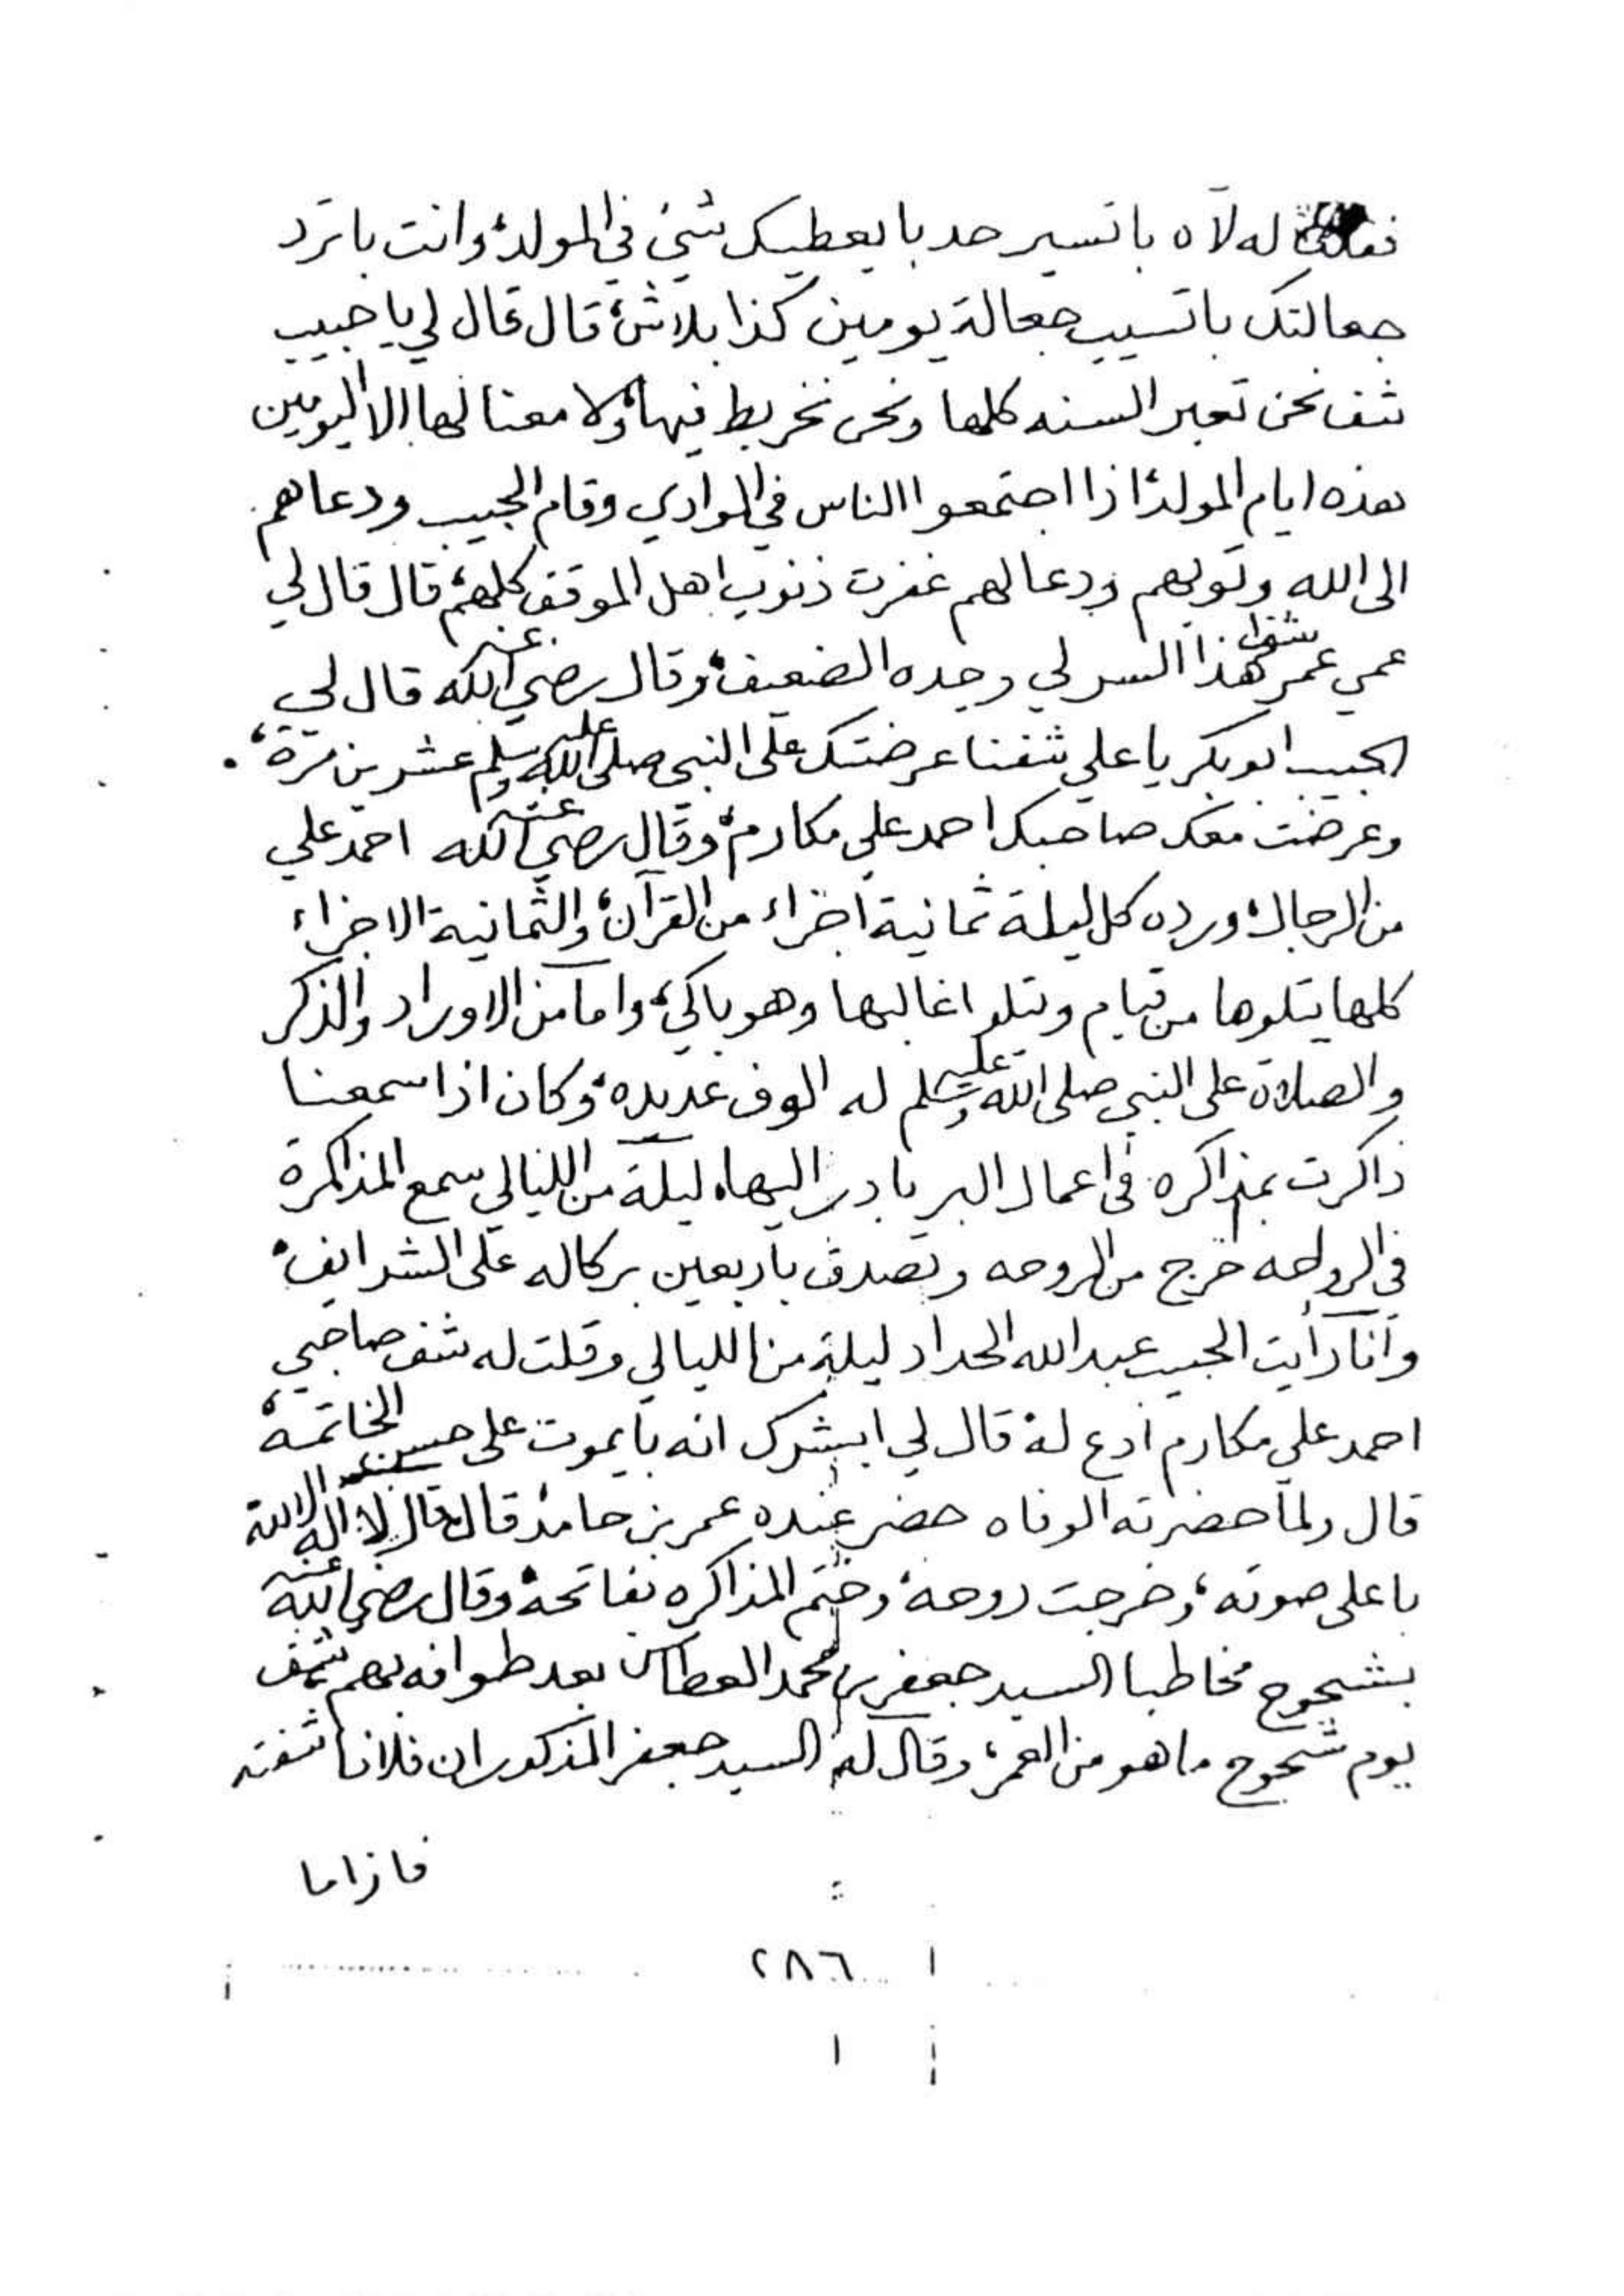 فقلت له لآه باتسير حد بايعطيك شيئ في المولد، وانت باترد
جعالتك باتسيب جعالة يومين كذا بلاش، قال قال لي ياحبيب
شف نحن تعبر السنه كلها ونحن نخربط فيها، ولا معنا لها الا اليومين
هذه ايام المولد، اذا اجتمعوا الناس في الوادي وقام الحبيب ودعاهم
الى الله وتوبهم ودعا لهم غفرت ذنوب اهل الموقف كلهم، قال قال لي
عمي عمر شف هذا السر لي وحده الضعيف، وقال رضي الله عنه قال لي
الحبيب ابوبكر ياعلي شفنا عرضتك على النبي صلى الله عليه وسلم عشرين مرة،
وعرضت معك صاحبك احمد علي مكارم، وقال رضي الله عنه احمد علي
من الرجال، ورده كل ليلة ثمانية اجزاء من القرآن، والثمانية الاجزاء
كلها يتلوها من قيام ويتلو اغالبها وهو باكي، واما من الاوراد والذكر
والصلاة على النبي صلى الله عليه وسلم له الوف عديده، وكان اذا سمعنا
ذاكرت بمذاكره في اعمال البر بادر اليها، ليلة من الليالي سمع المذاكرة
في الروحه خرج من الروحه وتصدق باربعين ركاله على الشرايف،
وانا رأيت الحبيب عبدالله الحداد ليلة من الليالي وقلت له شف صاحبي
احمد علي مكارم ادع له، قال لي ابشرك انه بايموت على حسن الخاتمه،
قال ولما حضرته الوفاه حضر عنده عمر بن حامد، قال قال لا اله الا الله
باعلى صوته، وخرجت روحه، وختم المذاكره بفاتحة، وقال رضي الله عنه
بشحوح مخاطبا السيد جعفر بن محمد العطاس بعد طوافه بهم شف
يوم شحوح ماهو من العمر، وقال له السيد جعفر المذكور ان فلانا شفته
فازاما
٢٨٦